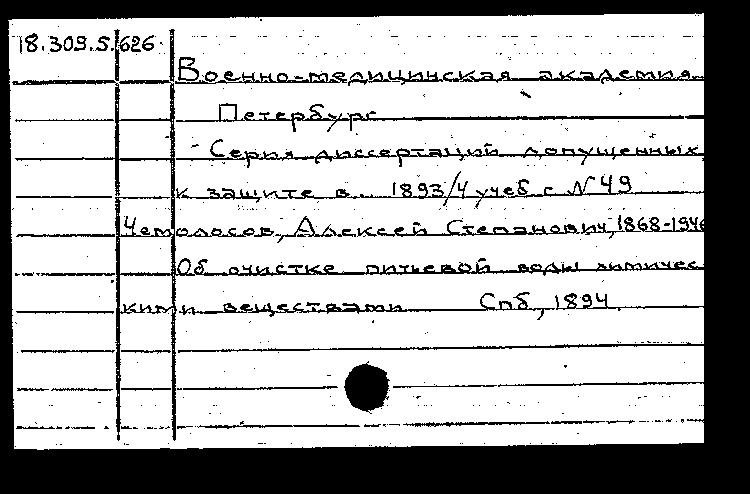 18.309.5.626
Военно-медицинская академия.
Петербург
Серия диссертаций допущенных
к защите в.. 1893/4 учеб г № 49
Чемолосов, Алексей Степанович, 1868-1946
Об очистке питьевой воды химичес
кими веществами Спб, 1894